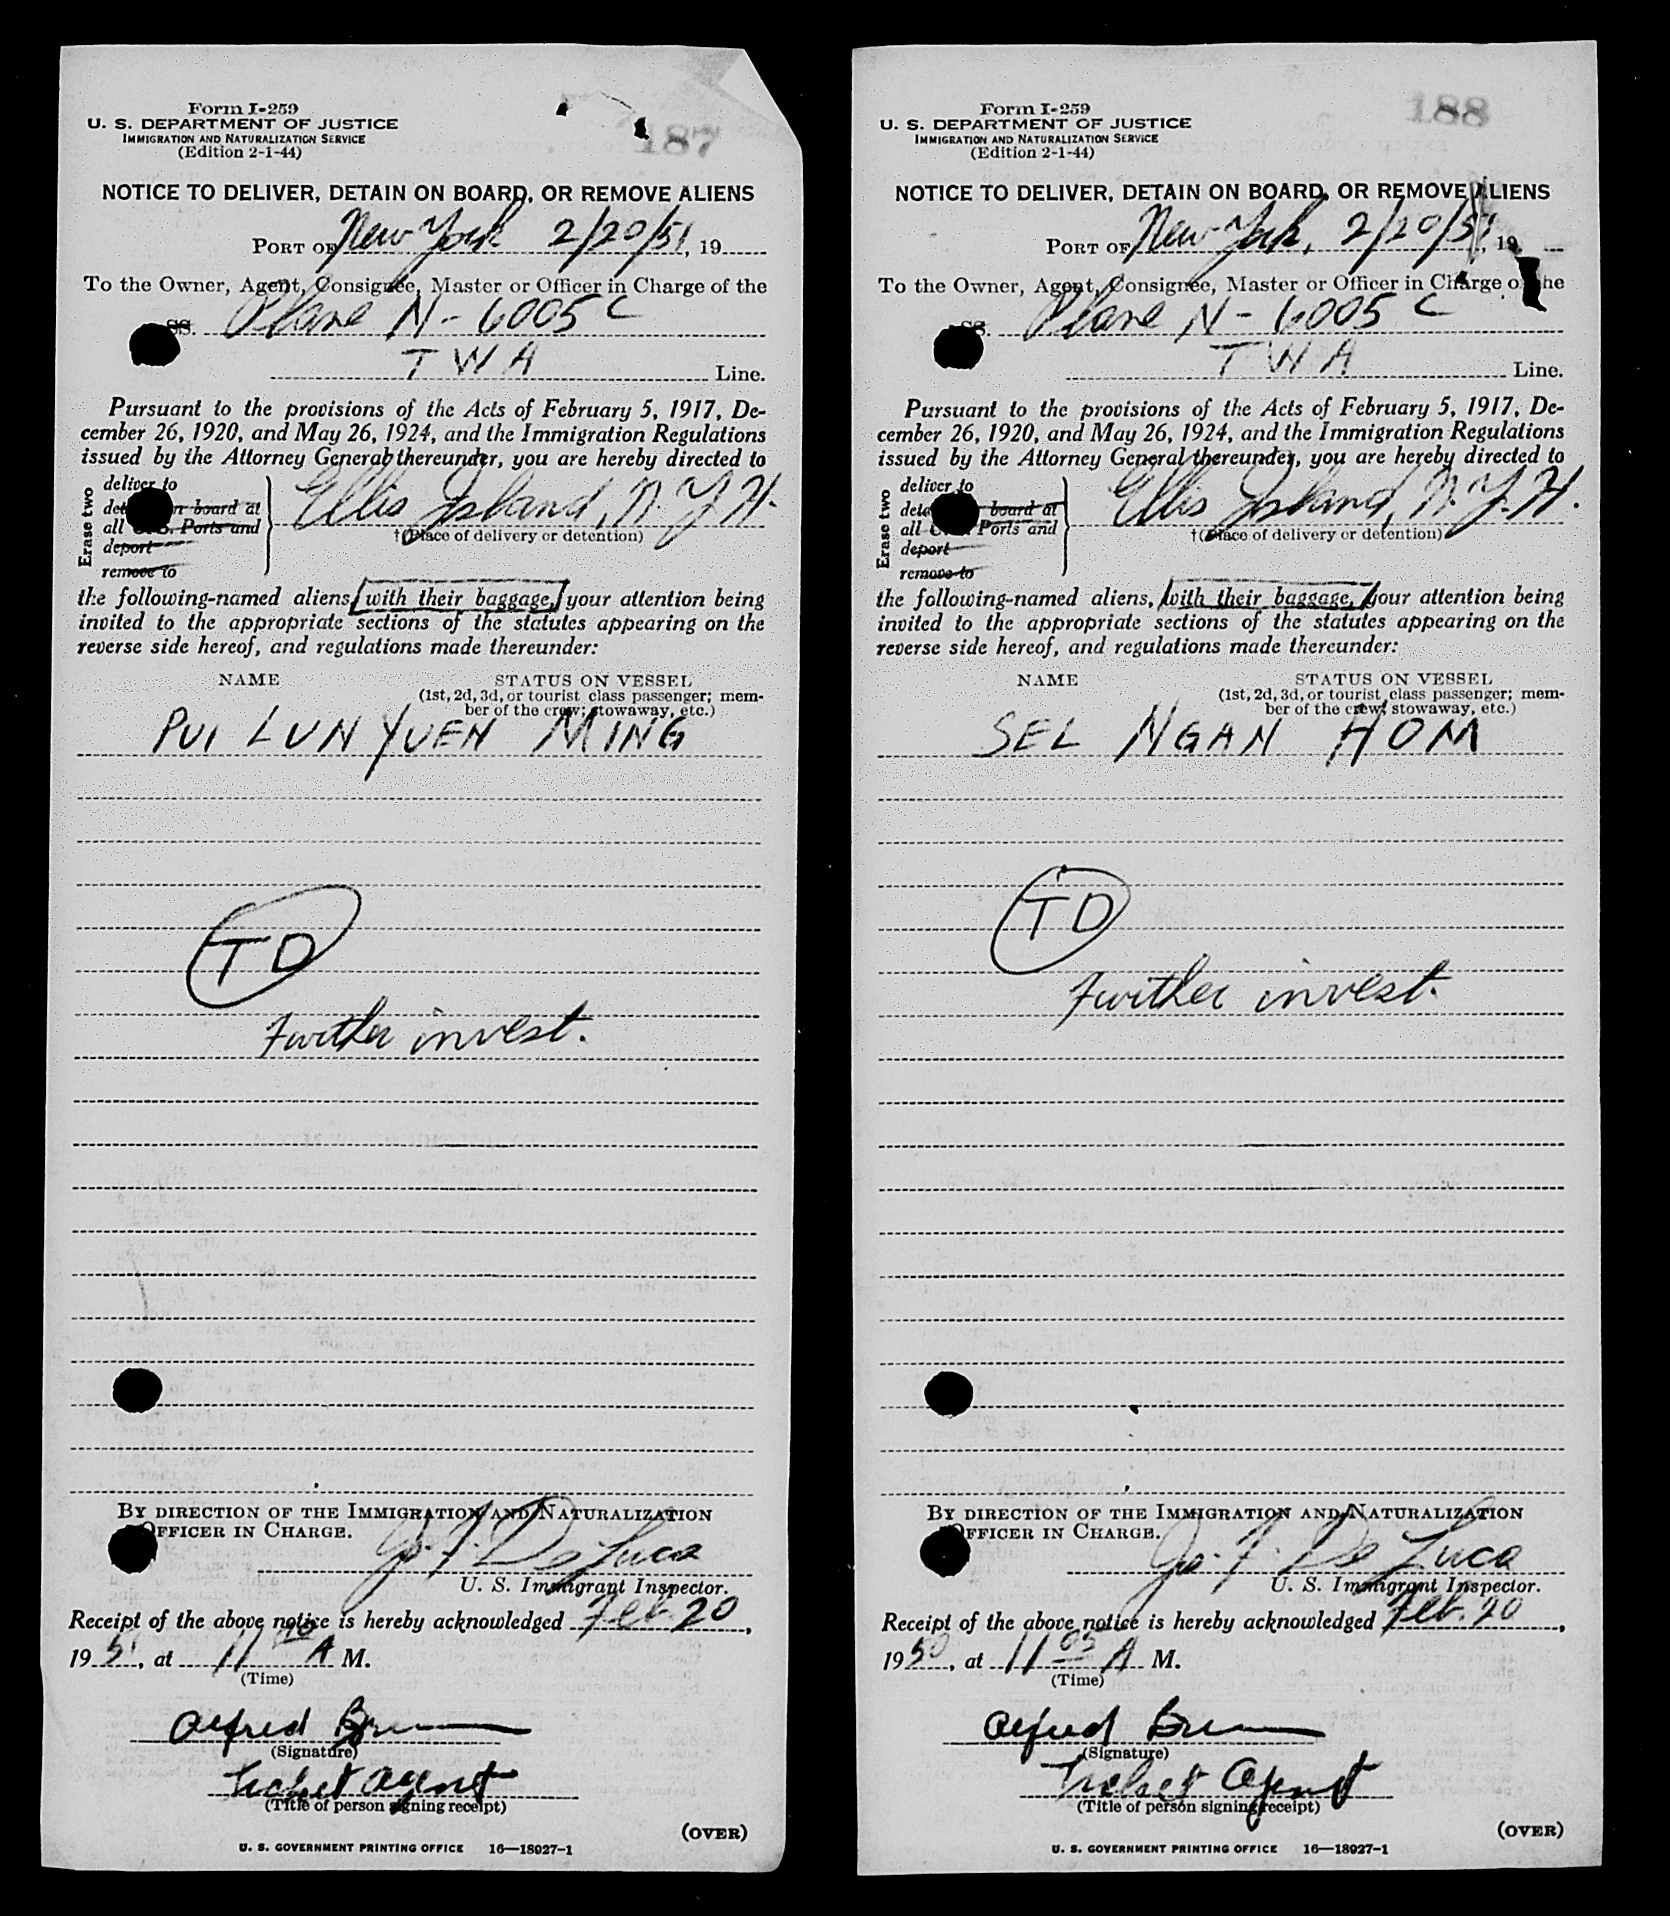 187
Form I-259
U. S. DEPARTMENT OF JUSTICE
IMMIGRATION AND NATURALIZATION SERVICE
(Edition 2-1-44)
NOTICE TO DELIVER, DETAIN ON BOARD, OR REMOVE ALIENS
PORT OF New York 2/20/51, 19
To the Owner, Agent, Consignee, Master or Officer in Charge of the
SS. Plane N-6005 C
TWA Line.
Pursuant to the provisions of the Acts of February 5, 1917, De-
cember 26, 1920, and May 26, 1924, and the Immigration Regulations
issued by the Attorney General thereunder, you are hereby directed to
Erase two
deliver to
on board at
all U. S. Ports and
deport
remove to
Ellis Island, N. Y. H.
†(Place of delivery or detention)
the following-named aliens, with their baggage, your attention being
invited to the appropriate sections of the statutes appearing on the
reverse side hereof, and regulations made thereunder:
NAME STATUS ON VESSEL
(1st, 2d, 3d, or tourist class passenger; mem-
ber of the crew; stowaway, etc.)
PUI LUN YUEN MING
TD
Further invest.
BY DIRECTION OF THE IMMIGRATION AND NATURALIZATION
OFFICER IN CHARGE.
Jo. F. De Luca
U. S. Immigrant Inspector.
Receipt of the above notice is hereby acknowledged Feb. 20,
19 51, at 11 A M.
(Time)
Alfred
(Signature)
Ticket Agent
(Title of person signing receipt)
(OVER)
U. S. GOVERNMENT PRINTING OFFICE 16—18927-1
188
Form I-259
U. S. DEPARTMENT OF JUSTICE
IMMIGRATION AND NATURALIZATION SERVICE
(Edition 2-1-44)
NOTICE TO DELIVER, DETAIN ON BOARD, OR REMOVE ALIENS
PORT OF New York, 2/20/51, 19
To the Owner, Agent, Consignee, Master or Officer in Charge of the
SS. Plane N-6005 C
TWA Line.
Pursuant to the provisions of the Acts of February 5, 1917, De-
cember 26, 1920, and May 26, 1924, and the Immigration Regulations
issued by the Attorney General thereunder, you are hereby directed to
Erase two
deliver to
board at
all Ports and
deport
remove to
Ellis Island, N. Y. H.
†(Place of delivery or detention)
the following-named aliens, with their baggage, your attention being
invited to the appropriate sections of the statutes appearing on the
reverse side hereof, and regulations made thereunder:
NAME STATUS ON VESSEL
(1st, 2d, 3d, or tourist class passenger; mem-
ber of the crew; stowaway, etc.)
SEL NGAN HOM
TD
Further invest.
BY DIRECTION OF THE IMMIGRATION AND NATURALIZATION
OFFICER IN CHARGE.
Jo. F. De Luca
U. S. Immigrant Inspector.
Receipt of the above notice is hereby acknowledged Feb. 20,
19 50, at 11 05 A M.
(Time)
Alfred
(Signature)
Ticket Agent
(Title of person signing receipt)
(OVER)
U. S. GOVERNMENT PRINTING OFFICE 16—18927-1